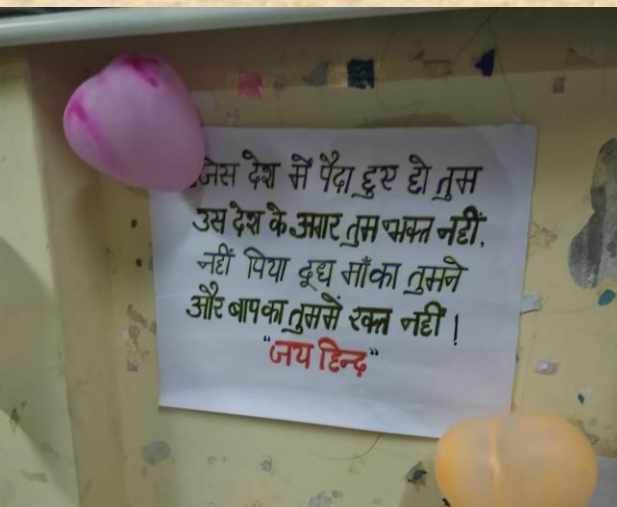 जिस देश में पैदा हुए हो तुम
उस देश के अगर तुम भक्त नहीं,
नहीं पिया दूध माँ का तुमने
और बाप का तुममें रक्त नहीं।
"जय हिन्द"